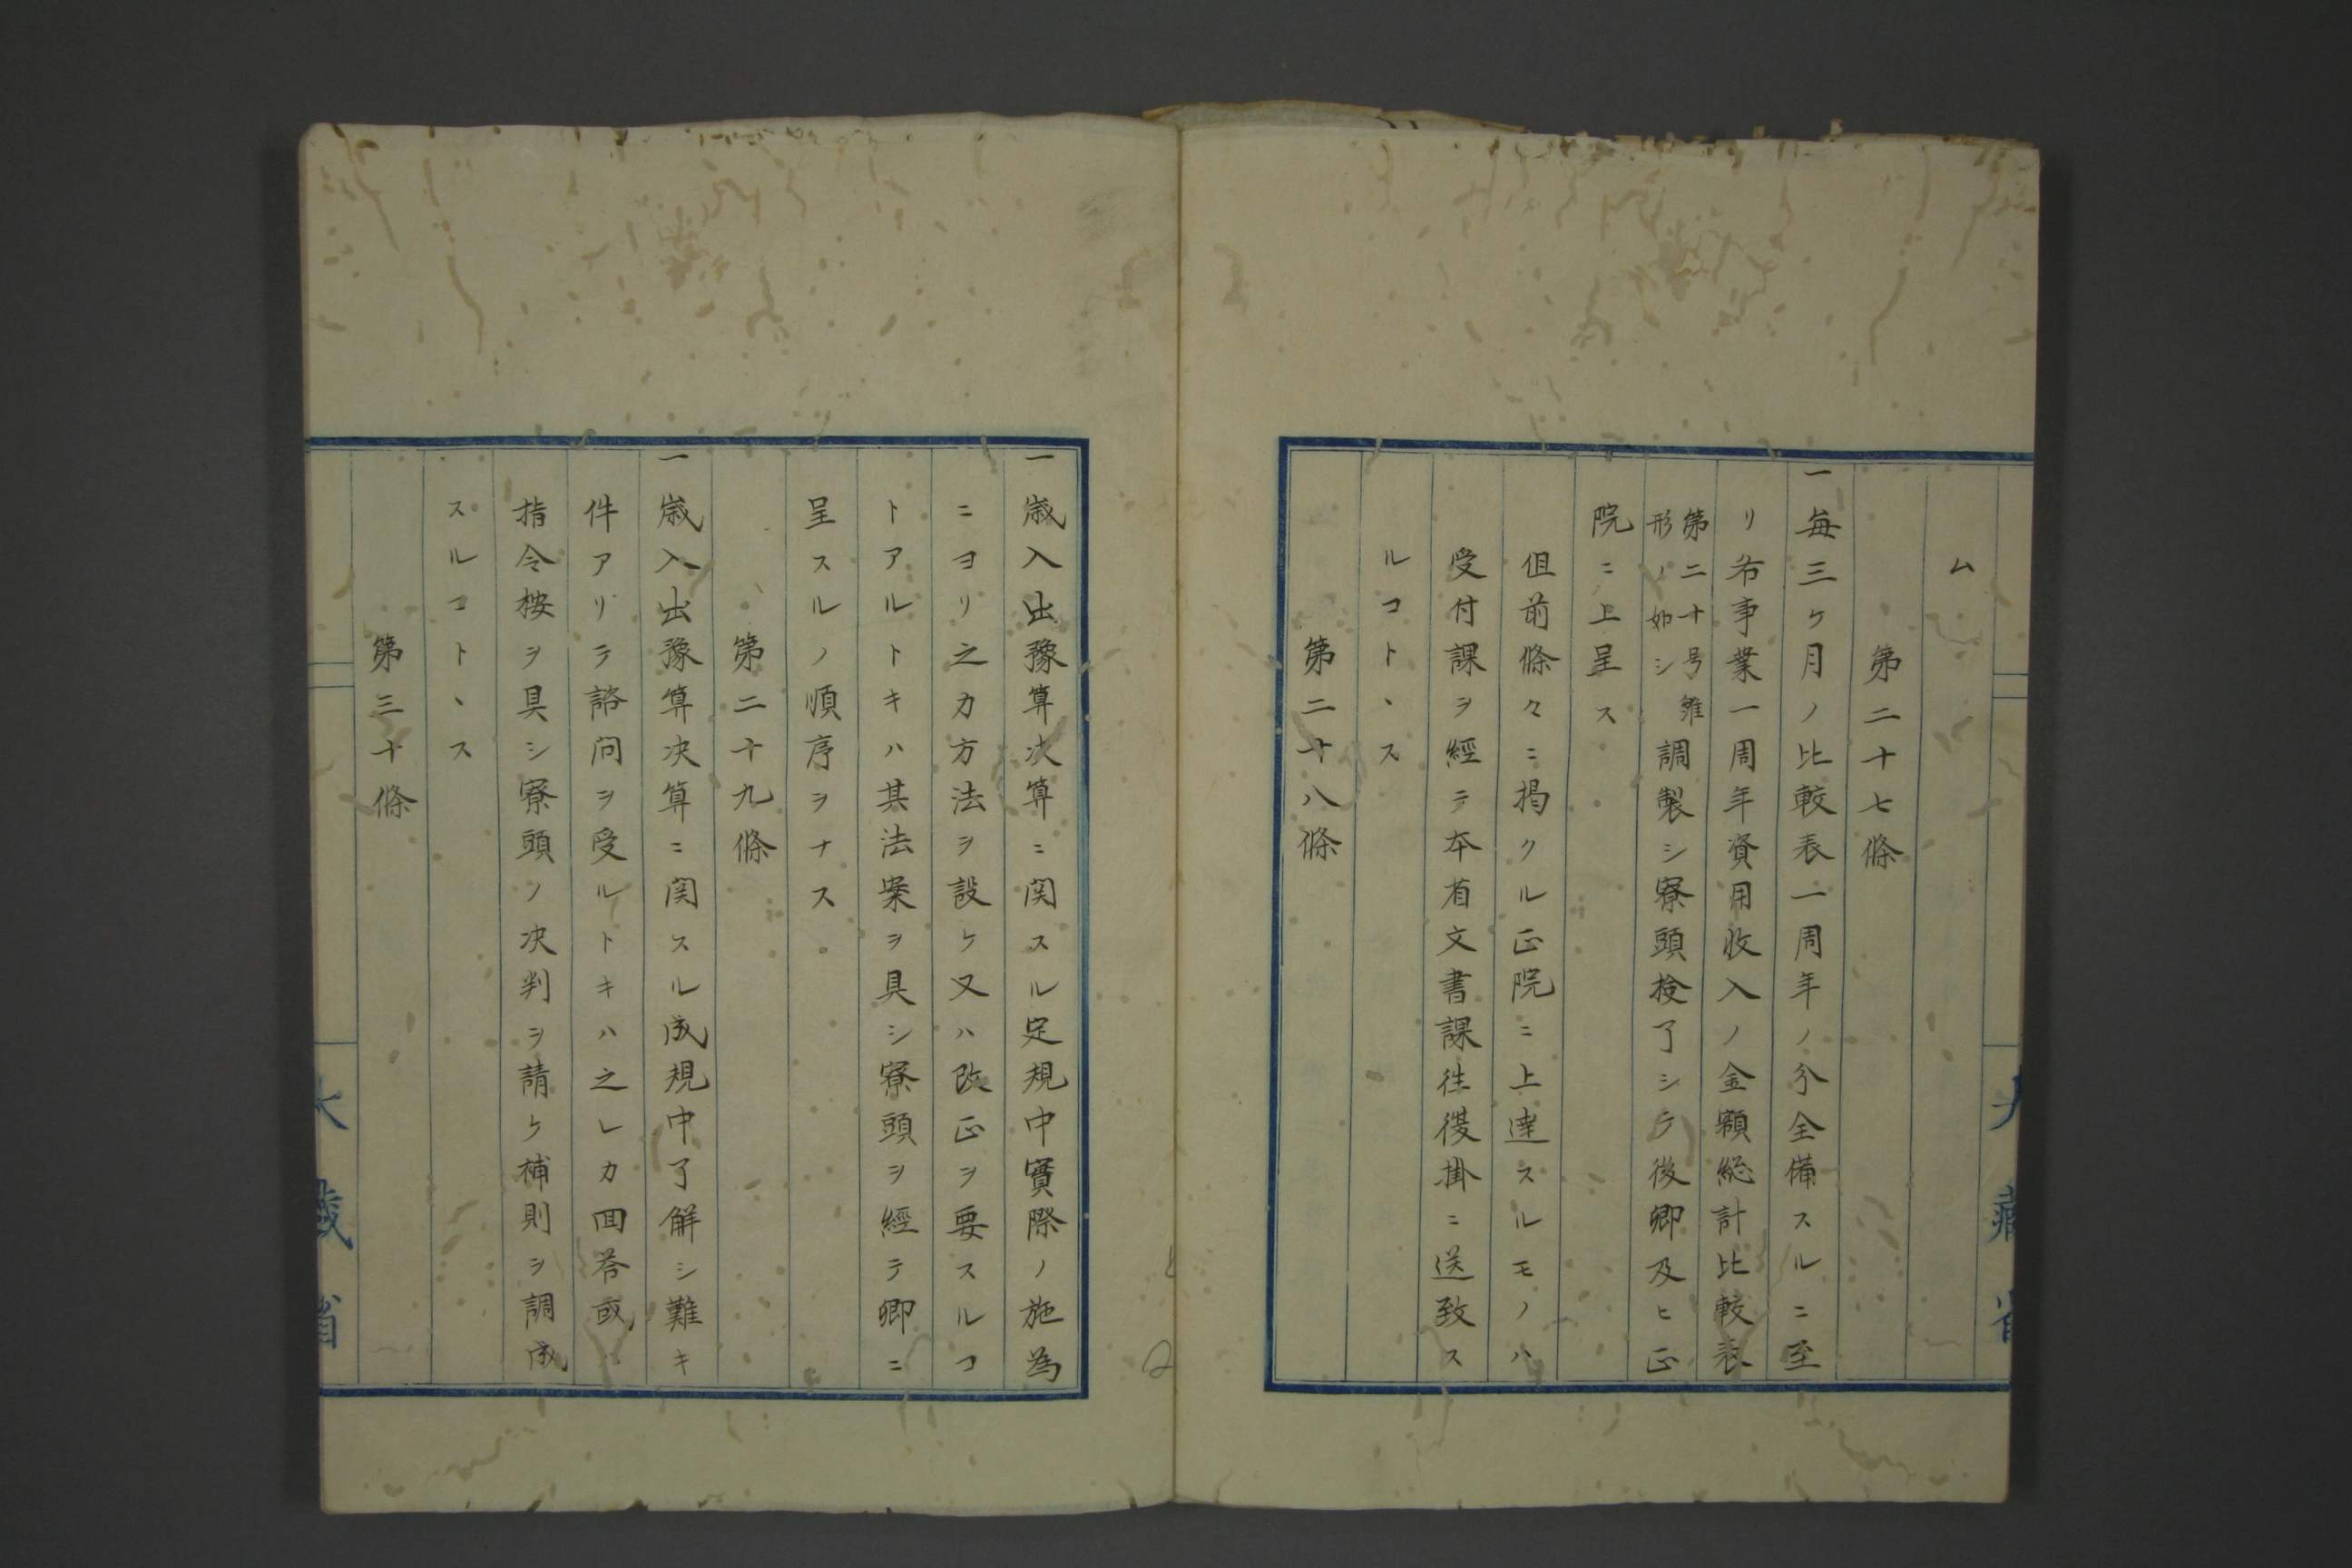 ム
第二十七條
一毎三ケ月ノ比較表一周年ノ分全備スルニ至
リ各事業一周年資用收入ノ金額総計比較表
第二十号雛
形ノ如シ
調製シ寮頭撿了シテ後卿及ヒ正
院ニ上呈ス
但前條々ニ掲クル正院ニ上達スルモノハ
受付課ヲ經テ本省文書課往復掛ニ送致ス
ルコトヽス
第二十八條
大藏省
一歳入出豫算决算ニ関スル定規中實際ノ施為
ニヨリ之カ方法ヲ設ケ又ハ改正ヲ要スルコ
トアルトキハ其法案ヲ具シ寮頭ヲ經テ卿ニ
呈スルノ順序ヲナス
第二十九條
一歳入出豫算决算ニ関スル成規中了解シ難キ
件アリテ諮問ヲ受ルトキハ之レカ回答或ハ
指令按ヲ具シ寮頭ノ决判ヲ請ケ補則ヲ調成
スルコトヽス
第三十條
大藏省